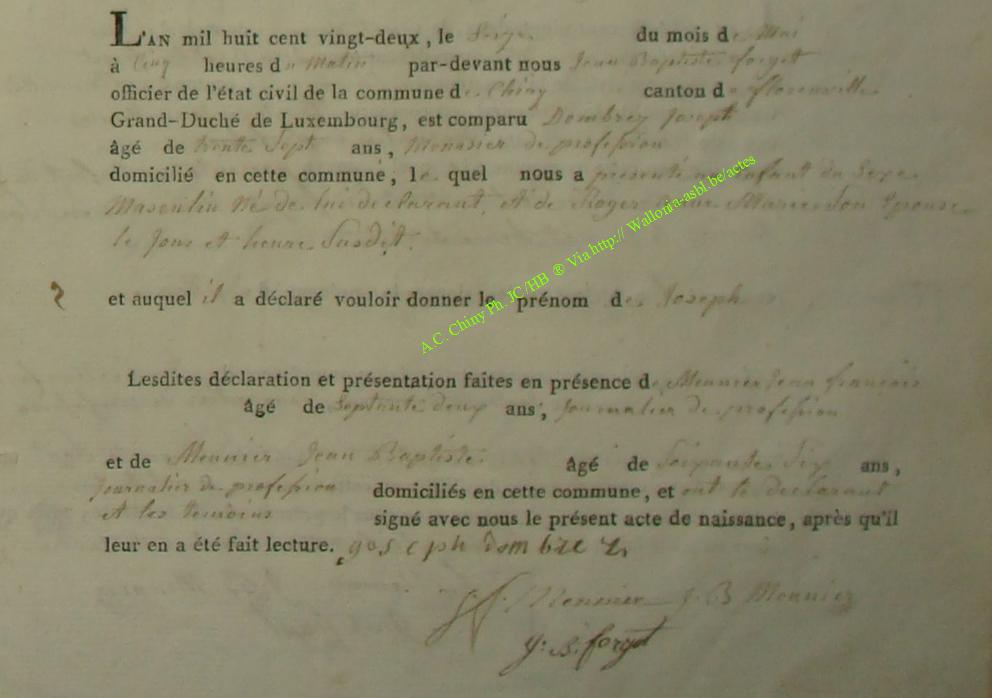 L'AN mil huit cent vingt-deux, le Seize du mois de Mai
à Cinq heures du Matin par-devant nous Jean Baptiste forget
officier de l'état civil de la commune de Chiny canton de florenville
Grand-Duché de Luxembourg, est comparu Dombrez Joseph
âgé de trente Sept ans, Menusier de profession
domicilié en cette commune, le quel nous a présenté un enfant du Sexe
Masculin Né de lui declarant, et de Roger Marie Son Epouse
le Jour et heure Susdit.
2 et auquel il a déclaré vouloir donner le prénom de Joseph
Lesdites déclaration et présentation faites en présence de Meunier Jean françois
âgé de Septante deux ans, Journalier de profession
et de Meunier Jean Baptiste âgé de Soixante Six ans,
Journalier de profession domiciliés en cette commune, et ont le declarant
et les temoins signé avec nous le présent acte de naissance, après qu'il
leur en a été fait lecture. goseph dombre z
Meunier J B Meunier
J: B. forget
A.C. Chiny Ph. JC/HB ® Via http:// Wallonia-asbl.be/actes